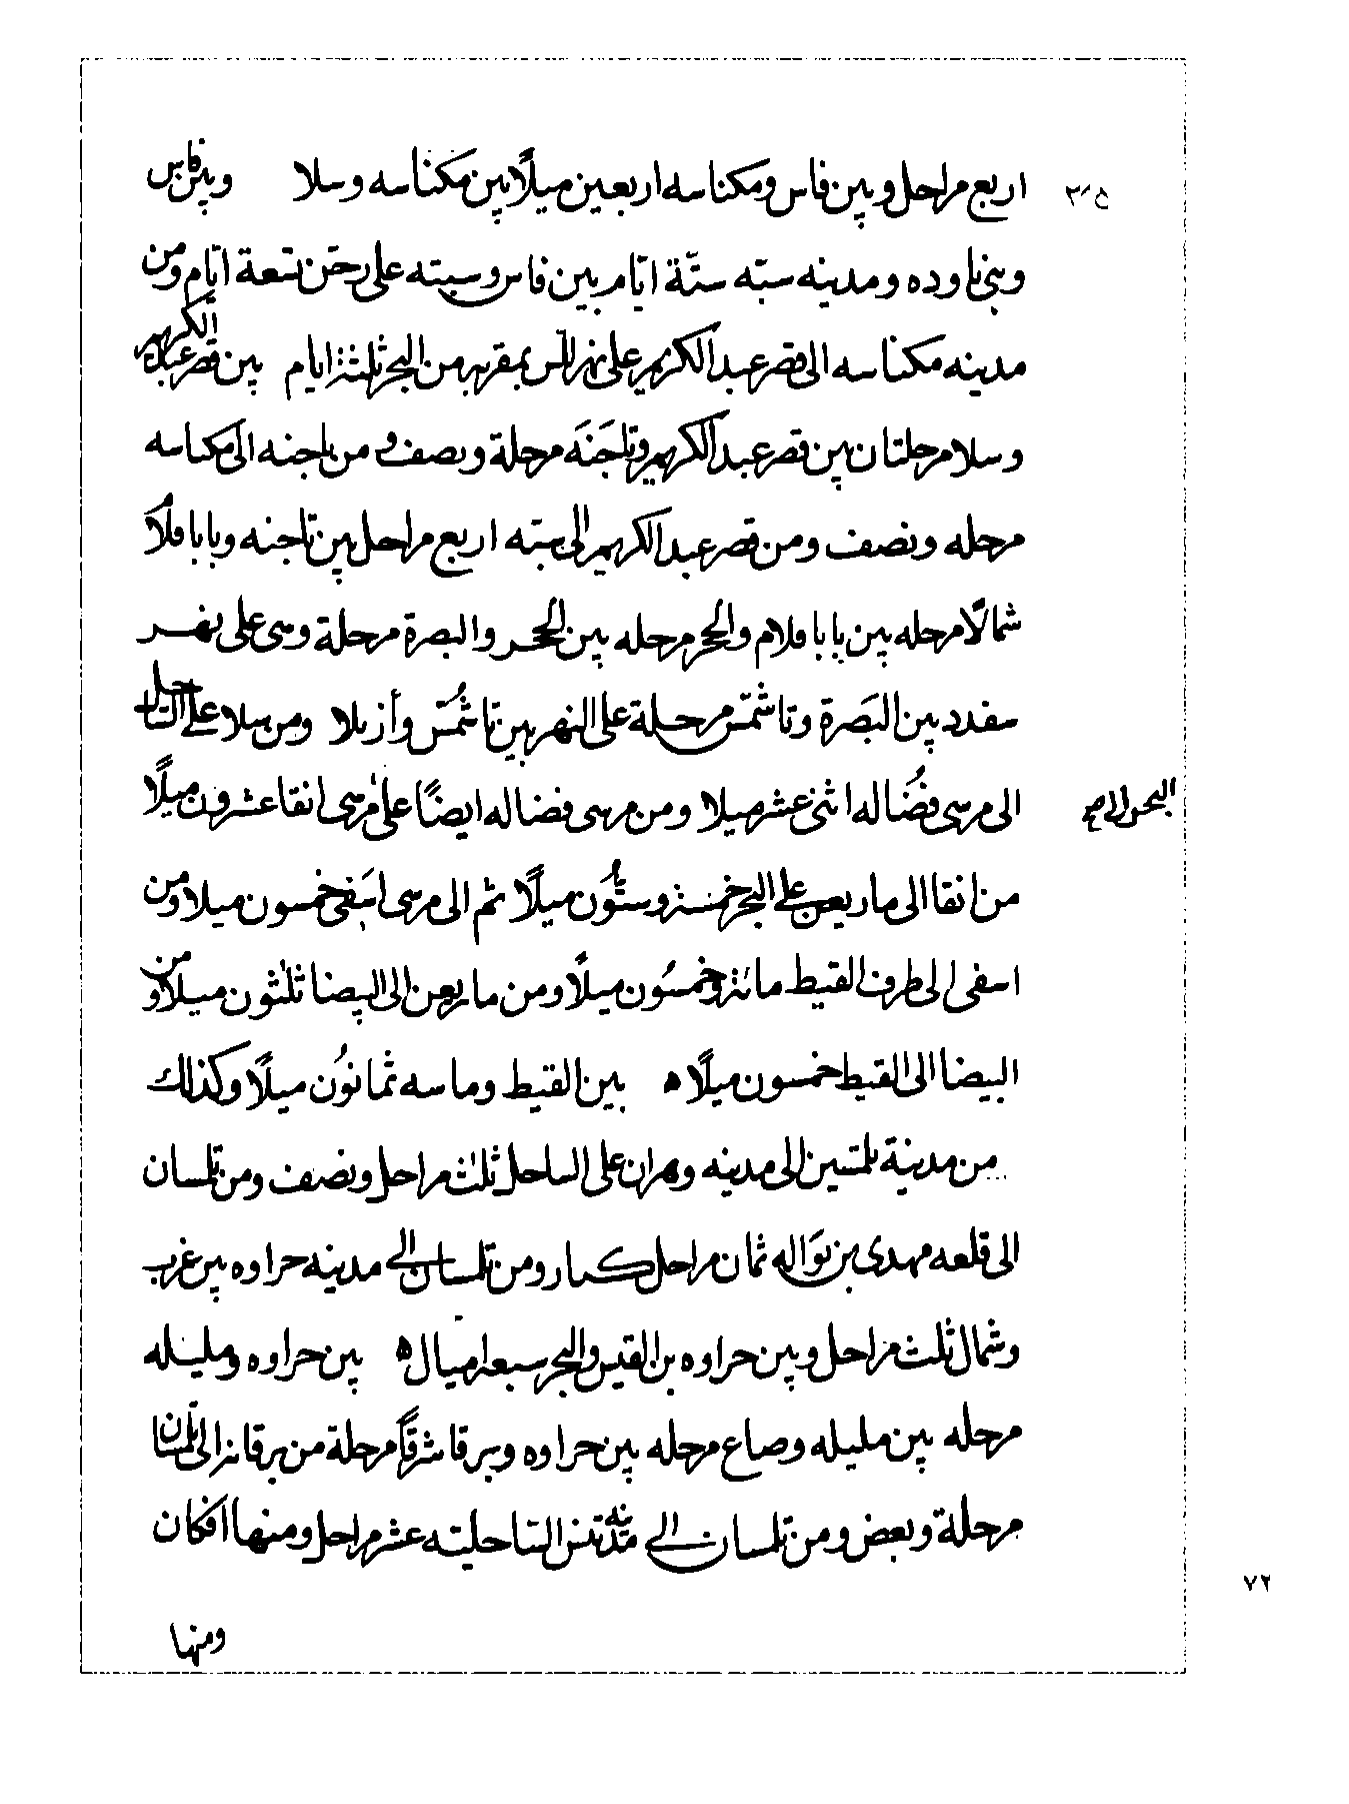 اربع مراحل وبين فاس ومكناسه اربعين ميلًا بين مكناسه وسلا وبين فاس
وبنى تاوده ومدينه سبته ستّة ايّام بين فاس وسبته على تسعة ايّام ومن
مدينه مكناسه الى قصر عبد الكريم على نهر بمقربه من البحر ثلثة ايام بين قصر عبد الكريم
وسلا مرحلتان بين قصر عبد الكريم وتاجَنَه مرحلة ونصف ومن تاجنه الى مكناسه
مرحله ونصف ومن قصر عبد الكريم الى سبته اربع مراحل بين تاجنه وبابا قلا
شمالًا مرحله بين بابا قلام والحجر مرحله بين الحجر والبصرة مرحلة وهى على نهر
سفدد بين البَصرة وتاشمّس مرحلة على النهر بين تاشُمّس وأزيلا ومن سلا على الساحل
الى مرسى فضُاله اثنى عشر ميلا ومن مرسى فضاله ايضًا على مرسى انفا عشرون ميلًا
البحر
من انفا الى ماريعن على البحر خمسة وستُّون ميلًا ثم الى مرسى اسَفى خمسون ميلا ومن
اسفى الى طرف القيط مائة وخمسُون ميلًا ومن ماريعن الى البيضا ثلٰثون ميلًا ومن
البيضا الى القيط خمسون ميلًا ه بين القيط وماسه ثمانوُن ميلًا وكذلك
من مدينة تلمسين الى مدينه وهران على الساحل ثلٰث مراحل ونصف ومن تلمسان
الى قلعه مهدى بن توَاله ثمان مراحل كبار ومن تلمسان الى مدينه حراوه بين غرب
وشمال ثلث مراحل وبين حراوه بن القيس والبحر سبعه اميال ه بين حراوه ومليله
مرحله بين مليله وصاع مرحله بين حراوه وبرقانه شرقاً مرحلة من برقانه الى تلمسان
مرحلة وبعض ومن تلمسان الى مدينه تنس الساحليّه عشر مراحل ومنها افكان
ومنها
٧٢